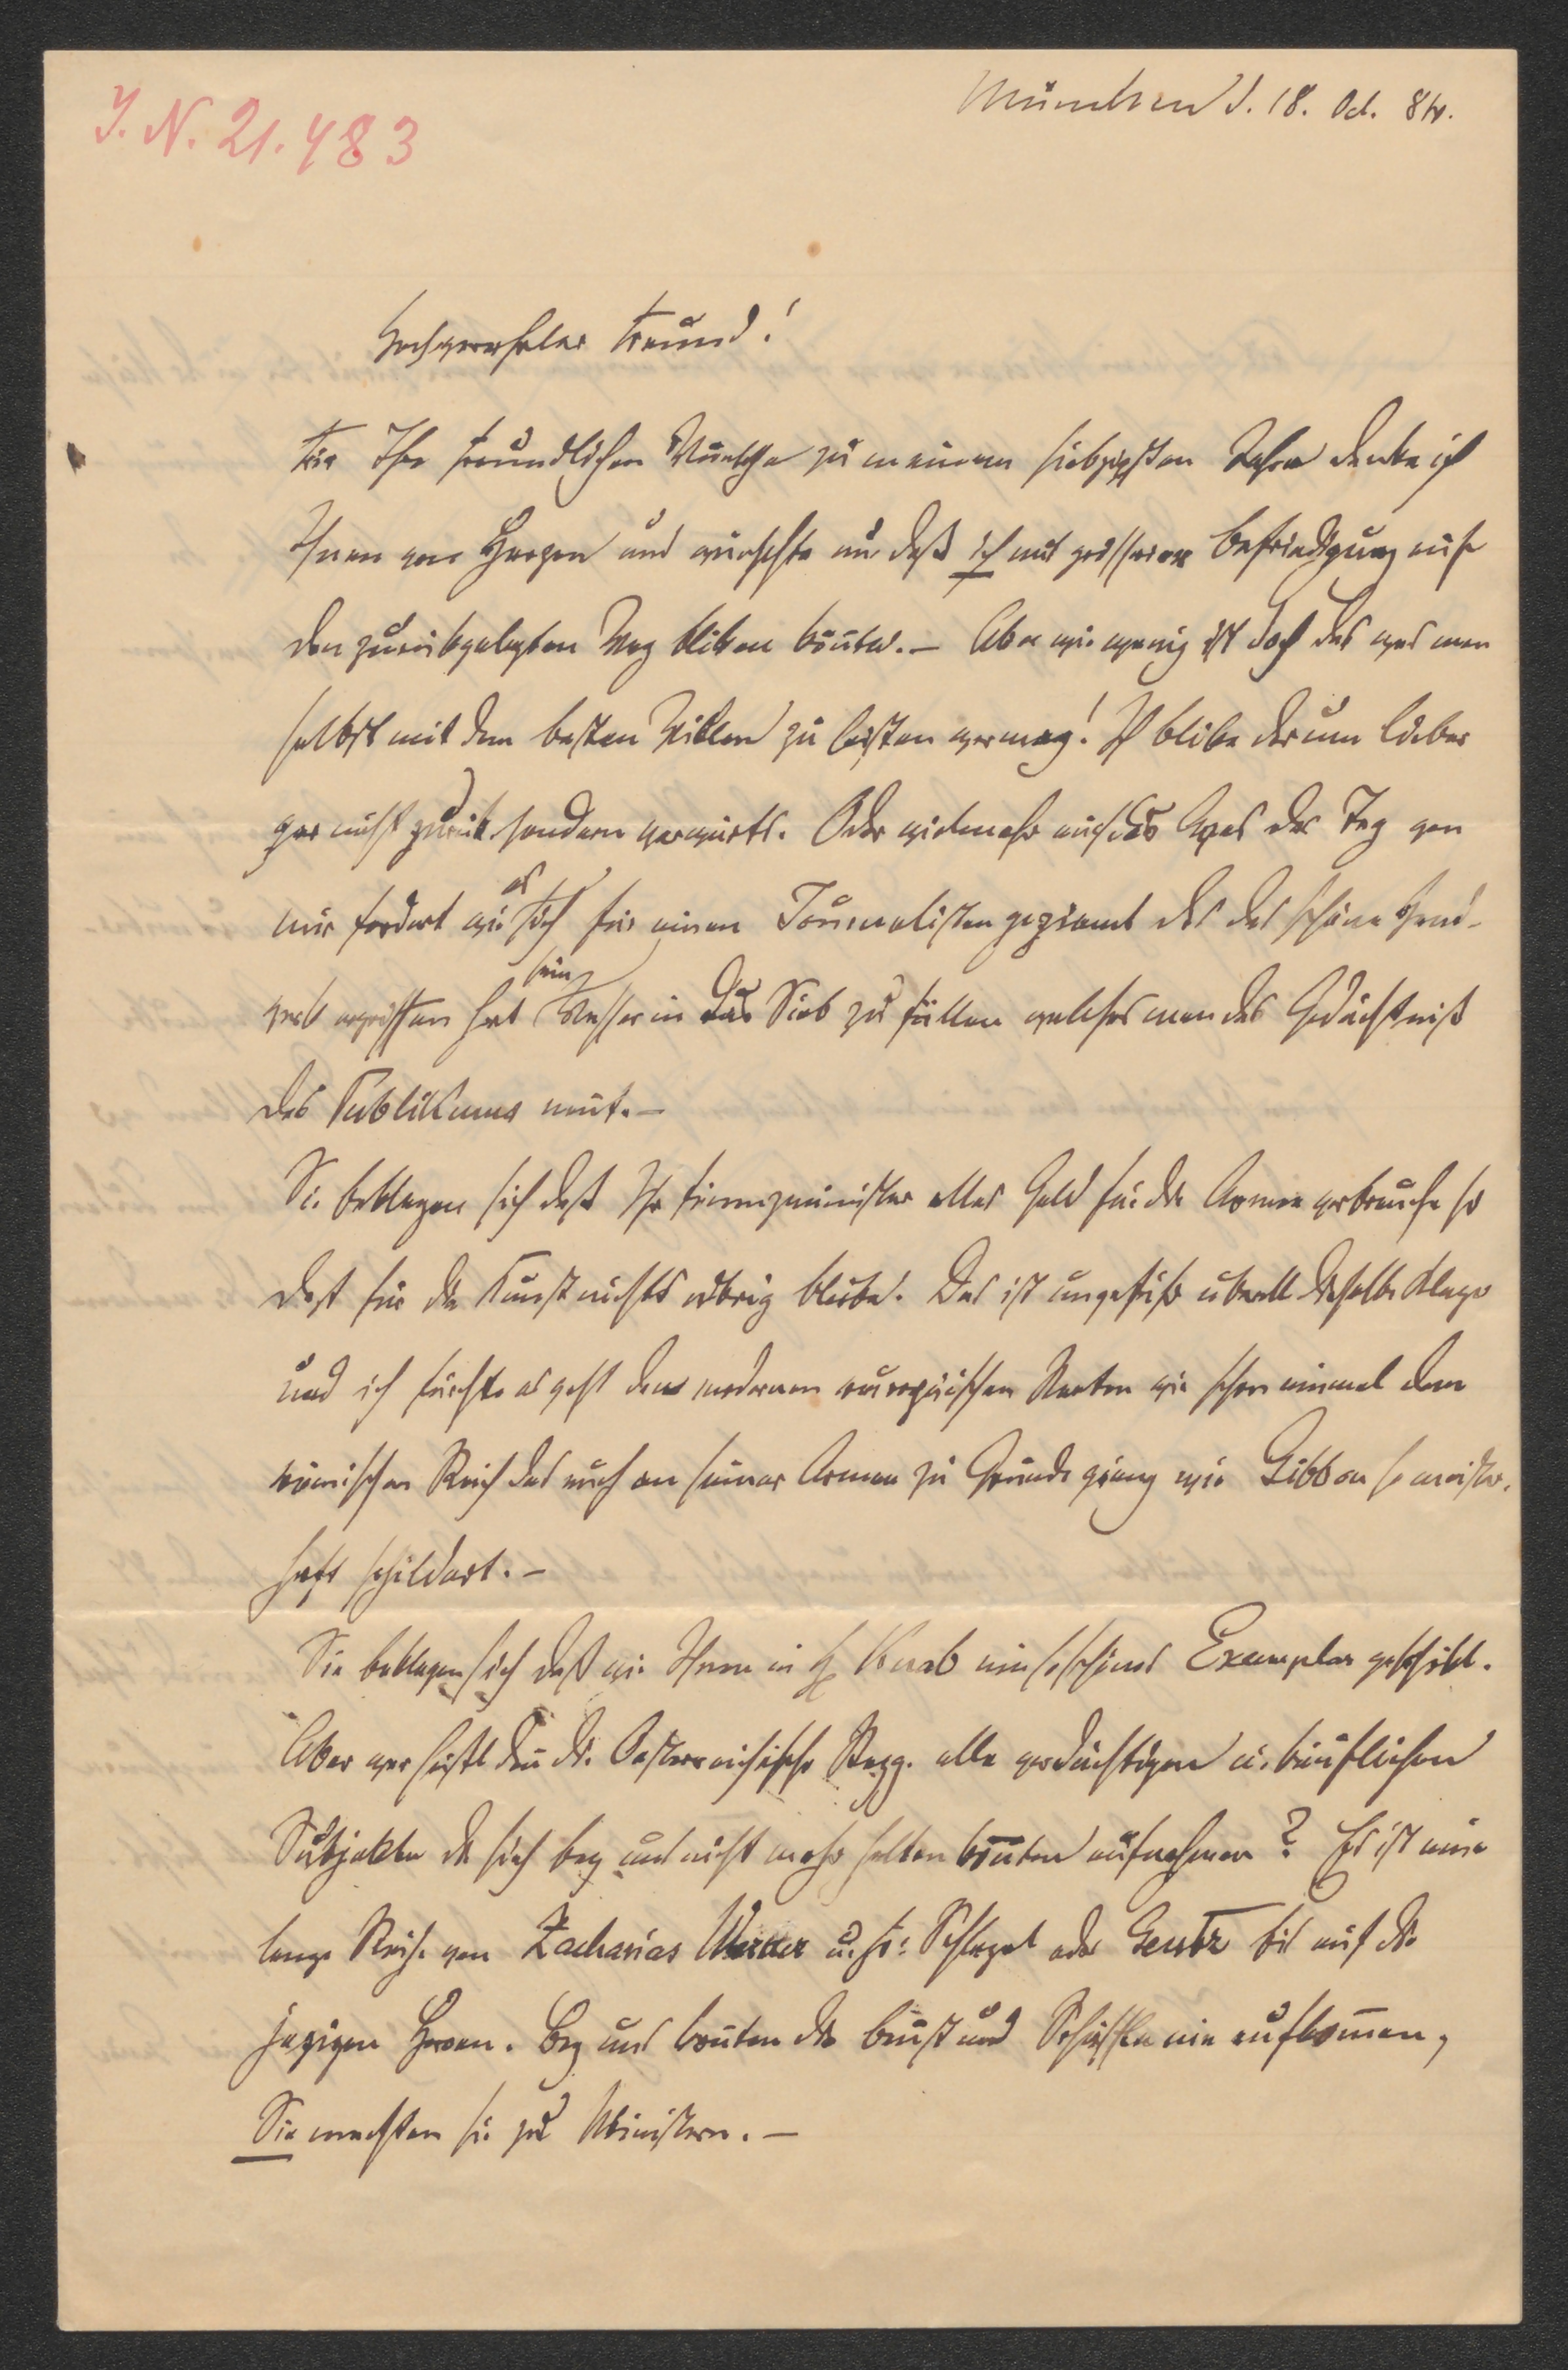 J. N. 21.483
München d. 18. Oct. 84.
Hochverehrter Freund!
Für Ihre freundlichen Wünsche zu meinem siebzigsten Jahre danke ich
Ihnen von Herzen und wünschte nur daß ich mit größerer Befriedigung auf
den zurückgelegten Weg bliken könnte. – Aber wie wenig ist doch das was man
selbst mit dem besten Willen zu leisten vermag! Ich blike darum lieber
gar nicht zurük sondern vorwärts. Oder vielmehr auf das was der Tag von
mir fordert wie es sich für einen Journalisten geziemt der das schöne Hand-
werk ergriffen hat sein Wasser in das Sieb zu füllen welches man das Gedächtniß
des Publikums nent. –
Sie beklagen sich daß Ihr Finanzminister alles Geld für die Armee verbrauche so
daß für die Kunst nichts übrig bleibe. Das ist ungefähr überall dieselbe Klage
und ich fürchte es geht den modernen europäischen Staaten wie schon einmal dem
römischen Reich das auch an seiner Armee zu Grunde gieng wie Gibbon so meister-
haft schildert. –
Sie beklagen sich daß wir Ihnen in H. Knab ein so schönes Exemplar geschikt.
Aber wer heißt den die Oesterreichische Regg. alle verdächtigen u. käuflichen
Subjekte die sich bey uns nicht mehr halten könten aufnehmen? Es ist eine
lange Reihe von Zacharias Werner u. Fr: Schlegel oder Gentz bis auf die
jezigen Herren. Bey uns konten die Beust und Schäffle nie aufkommen,
Sie machten sie zu Ministern. –